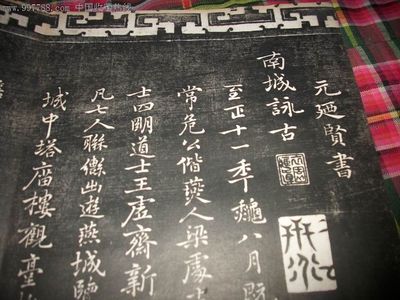 www.997788.com 中国收藏热线
元廼賢書
南城詠古
至正十一年龝八月既
常危公偕燕人梁處士
士四明道士王虛齋新
凡七人聯轡出遊燕城
城中塔廟樓觀臺